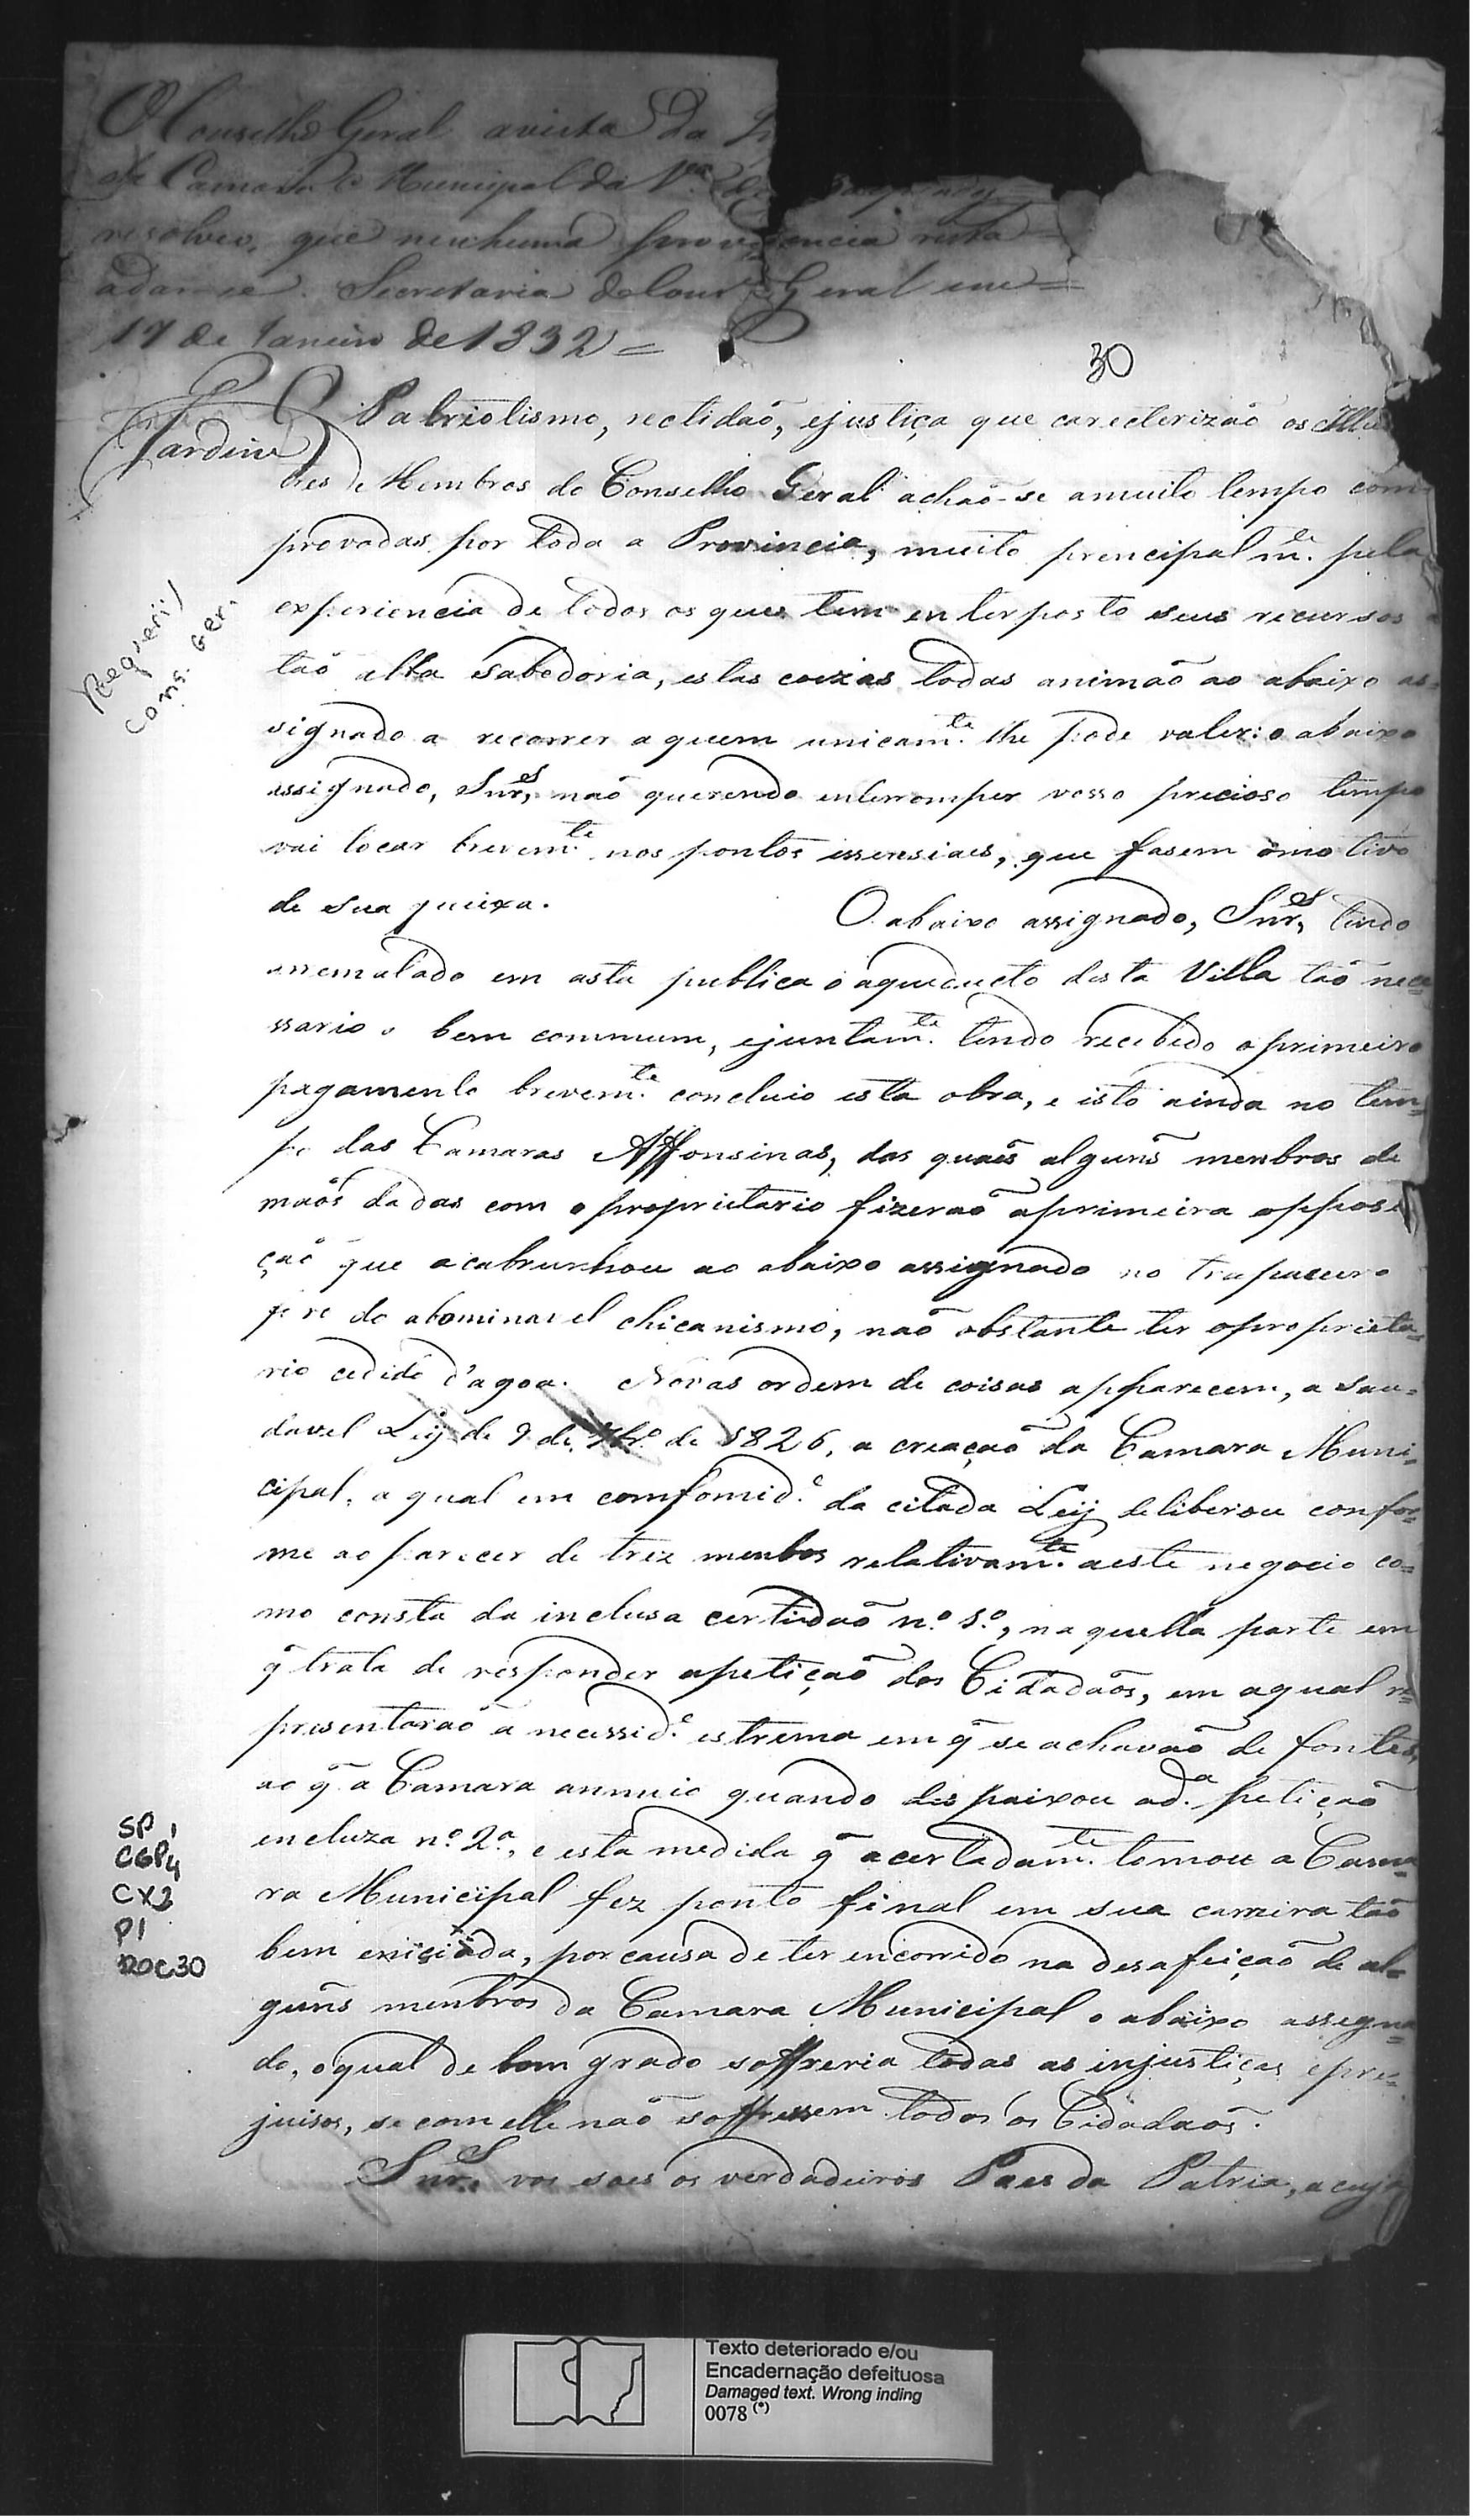 O Conselho Geral avista da
da Camara Municipal da V.ª de
resolveo, que nenhuma providencia resta
adar-se. Secretaria do Cons.º Geral em
17 de Janeiro de 1832 =
30
Jardim
O Patriotismo, rectidaõ, ejustiça que carecterizaõ os Illus
tres Membros do Conselho Geral achaõ-se amuito tempo com
provadas por toda a Provincia, muito principalm.te pela
experiencia de todos os que tem enterposto seus recursos a
taõ alta Sabedoria, estas coizas todas animaõ ao abaixo as=
signado a recorrer aquem unicam.te lhe pode valer: o abaixo
assignado, Snr.s, naõ querendo enterromper vosso precioso tempo
vai tocar brevem.te nos pontos essensiaes, que fasem omotivo
de sua queixa. O abaixo assignado, Snr.s, tendo
arrematado em asta publica o aqueducto desta Villa taõ nece
ssario o bem commum, ejuntam.te tendo recebido o primeiro
pagamento brevem.te concluio esta obra, e isto ainda no tem=
po das Camaras Affonsinas, das quaes alguñs menbros de
maõs dadas com o proprietario fizeraõ aprimeira opposi
çaõ que acabrunhou ao abaixo assignado no trapaceiro
foro do abominavel chicanismo, naõ obstante ter oproprieta=
rio cedido d'agoa. Novas ordem de coisas apparecem, a sau=
davel Leij de 9 de 7br.º de 1826, a creaçaõ da Camara Muni=
cipal, a qual em comfomid.e da citada Leij deliberou confor=
me ao parecer de trez menbos relativam.te aeste negocio co=
mo consta da inclusa certidaõ n.º 1.º, naquella parte em
q̃ trata de responder apetiçaõ dos Cidadaõs, em aqual re=
presentaraõ a necessid.e estrema em q̃ se achavaõ de fontes,
ao q̃ a Camara annuio quando despaixou ad.a petiçaõ
encluza n.º 2.º, e esta medida q̃ acertadam.te tomou a Cama=
ra Municipal fez ponto final em sua carreira taõ
bem eniciada, por causa de ter encorrido na desafeiçaõ de al=
guñs menbros da Camara Municipal o abaixo assegna=
do, oqual de bom grado soffreria todas as injustiças, epre=
juisos, se com elle naõ soffressem todos os Cidadaõs.
Snr.s vos soes os verdadeiros Paes da Patria, a cuja
Requeri/
Cons. Ger.
SP 1
CGP4
CX2
P1
DOC30
Texto deteriorado e/ou
Encadernação defeituosa
Damaged text. Wrong inding
0078 (*)